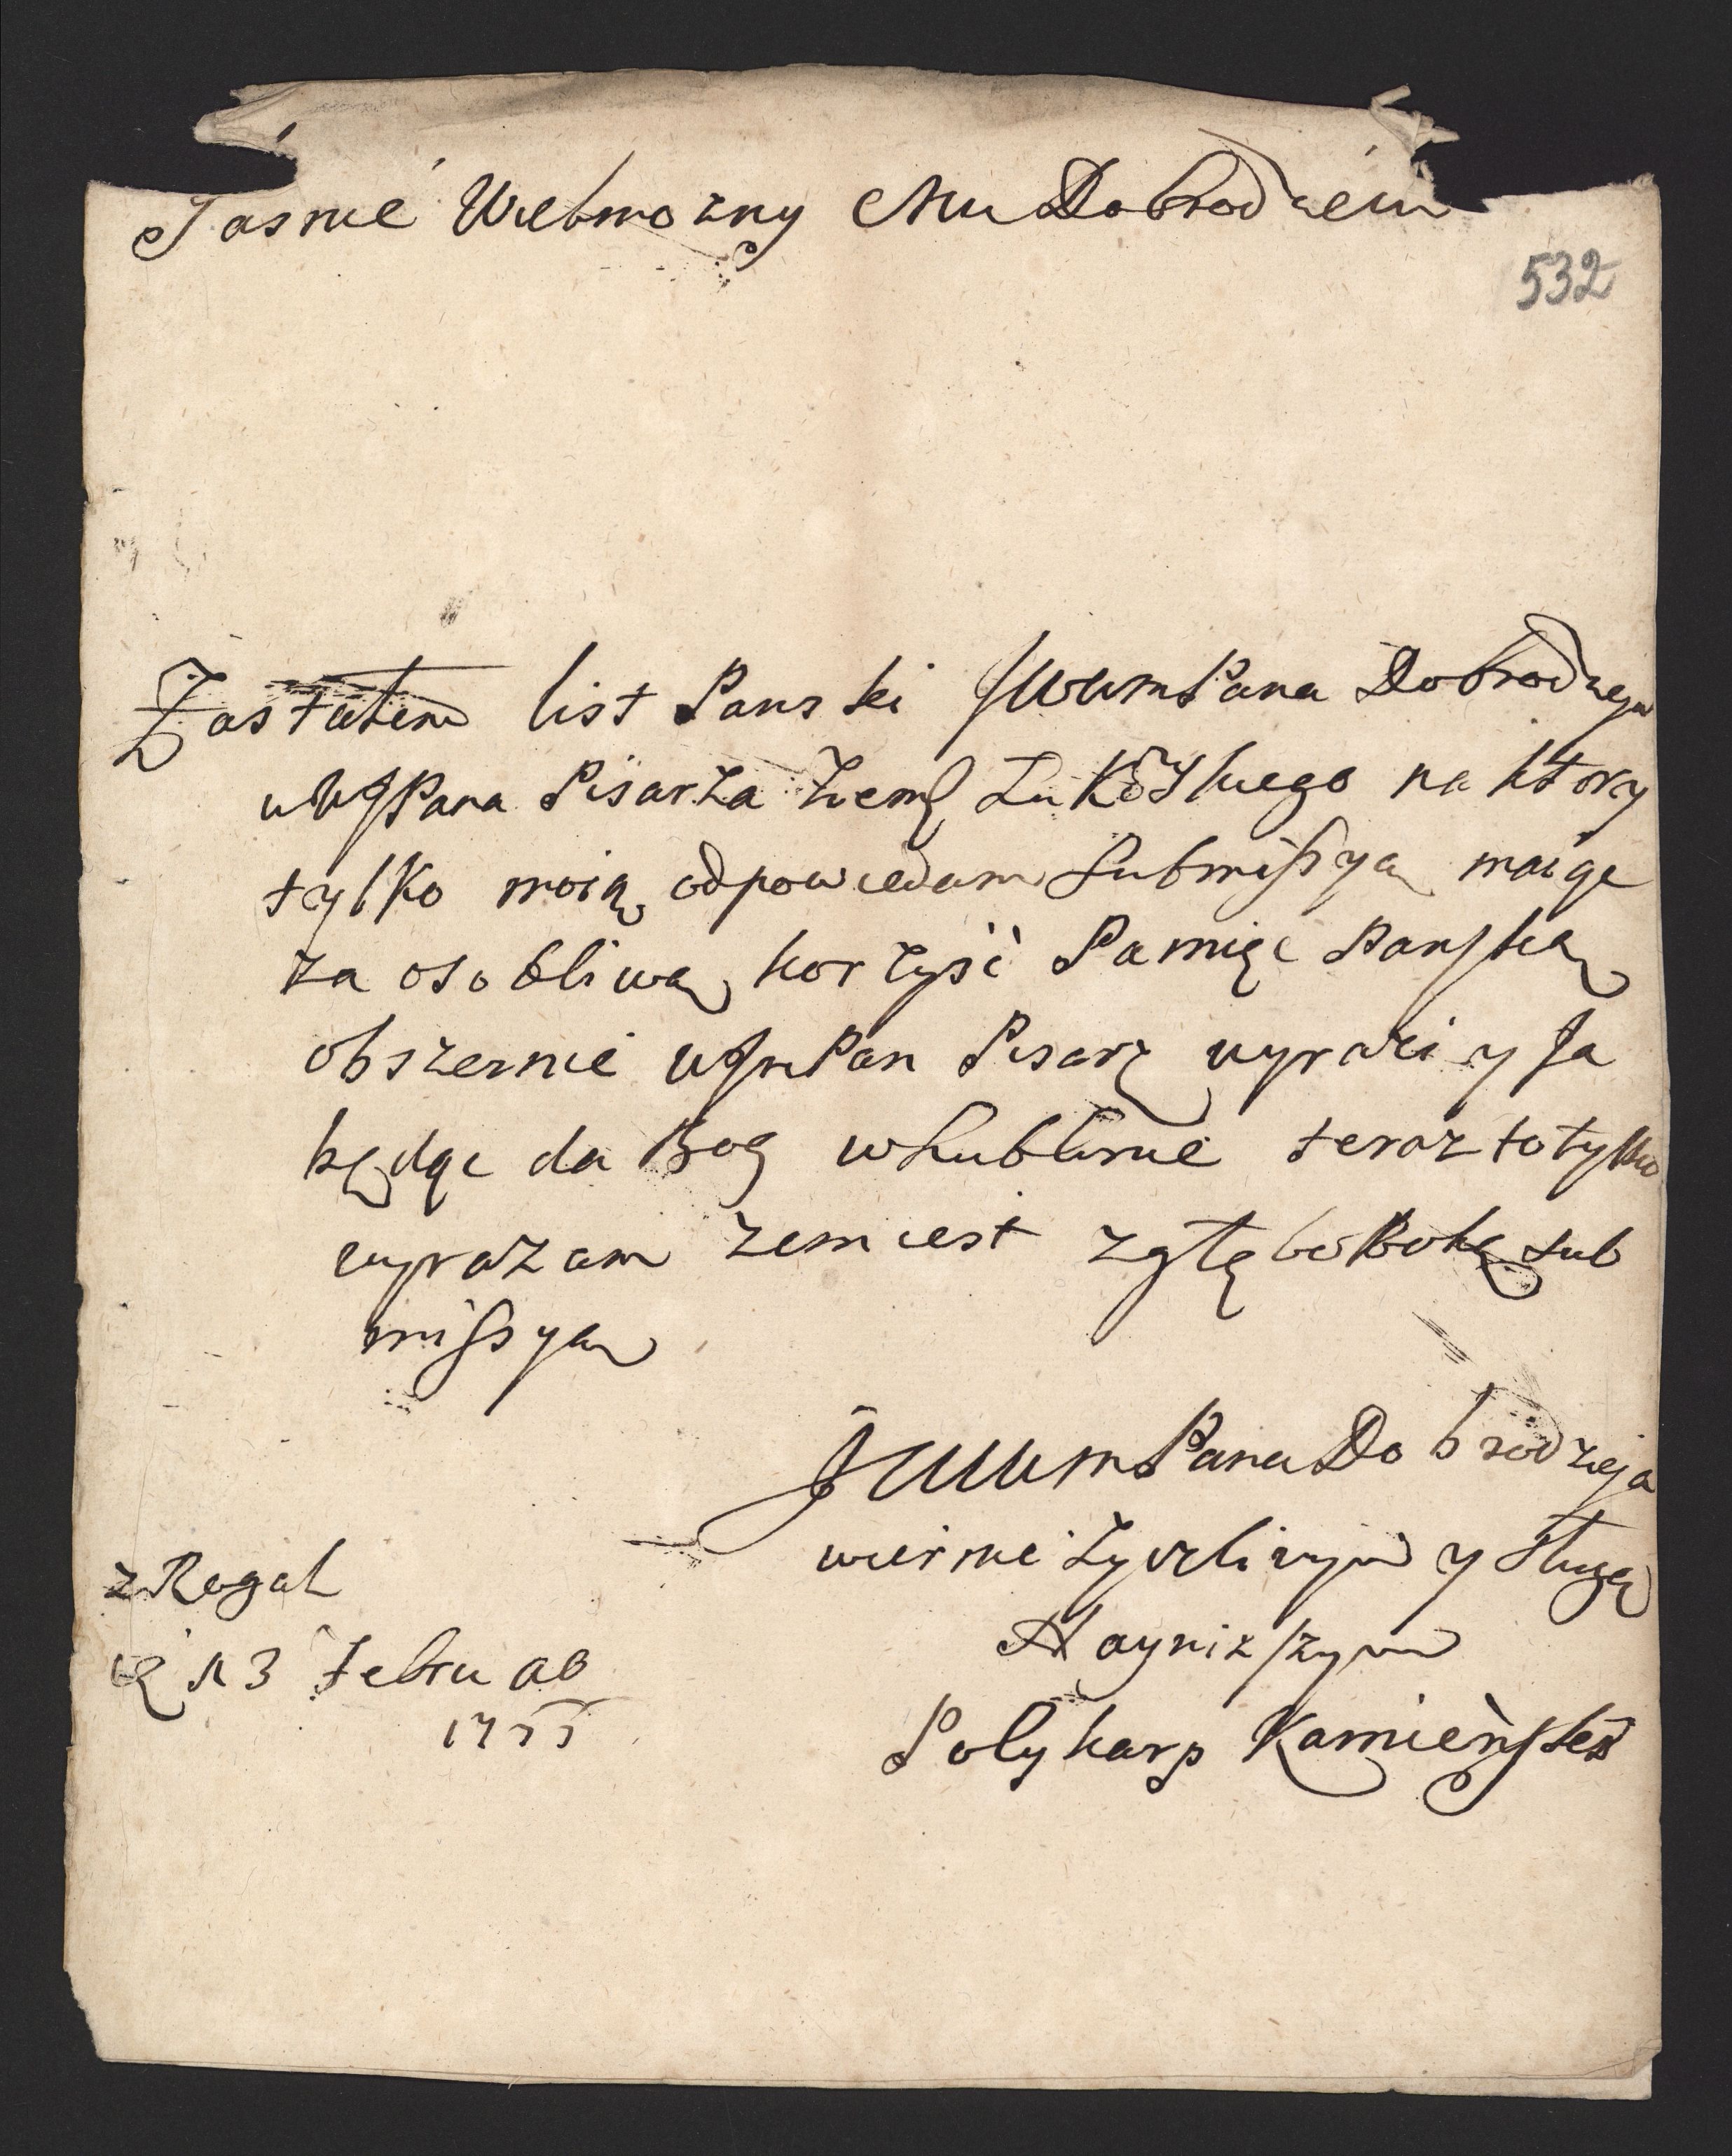 Jasnie Wielmozny Mu Dobrodzieiu
532
Zastałem list Panski JWWmPana Dobrodzieja
u WJPana Pisarza Ziems Łukowskiego na ktory
tylko moią odpowiedam Submissyą maiąc
za osobliwą korzyść Pamięc Panską
obszernie WJmPan Pisarz wyrazi y Ja
będąc da Bog w Lublinie teraz to tylko
wyrazam zem iest z głęboką sub
missyą
JWWmPana Dobrodzieja
wiernie Zyczliwym y sługą
Naynizszym
Polykarp Kamieński
z Rogal
13 Febru ao
1755